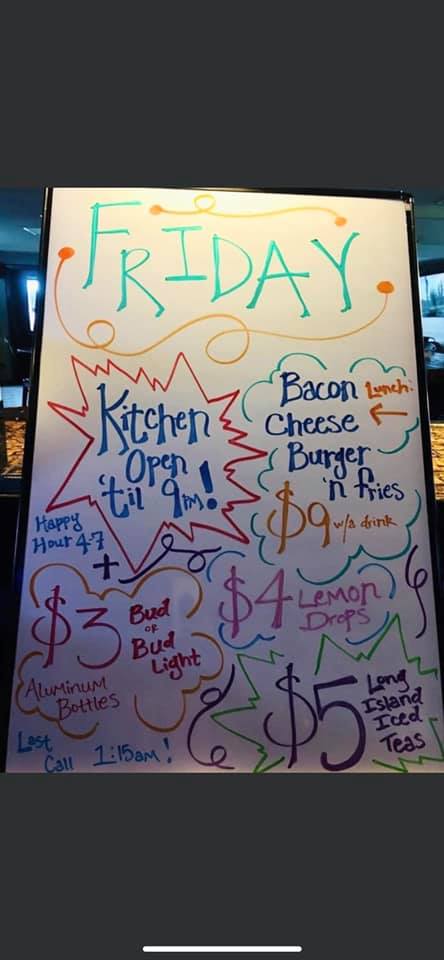 FRIDAY
Kitchen
Open
'til 9PM!
Lunch:
Bacon
Cheese
Burger
'n fries
$9 w/a drink
Happy
Hour 4-7
+
$3 Bud
or
Bud
Light
Aluminum
Bottles
$4 Lemon
Drops
$5 Long
Island
Iced
Teas
Last
Call 1:15am!